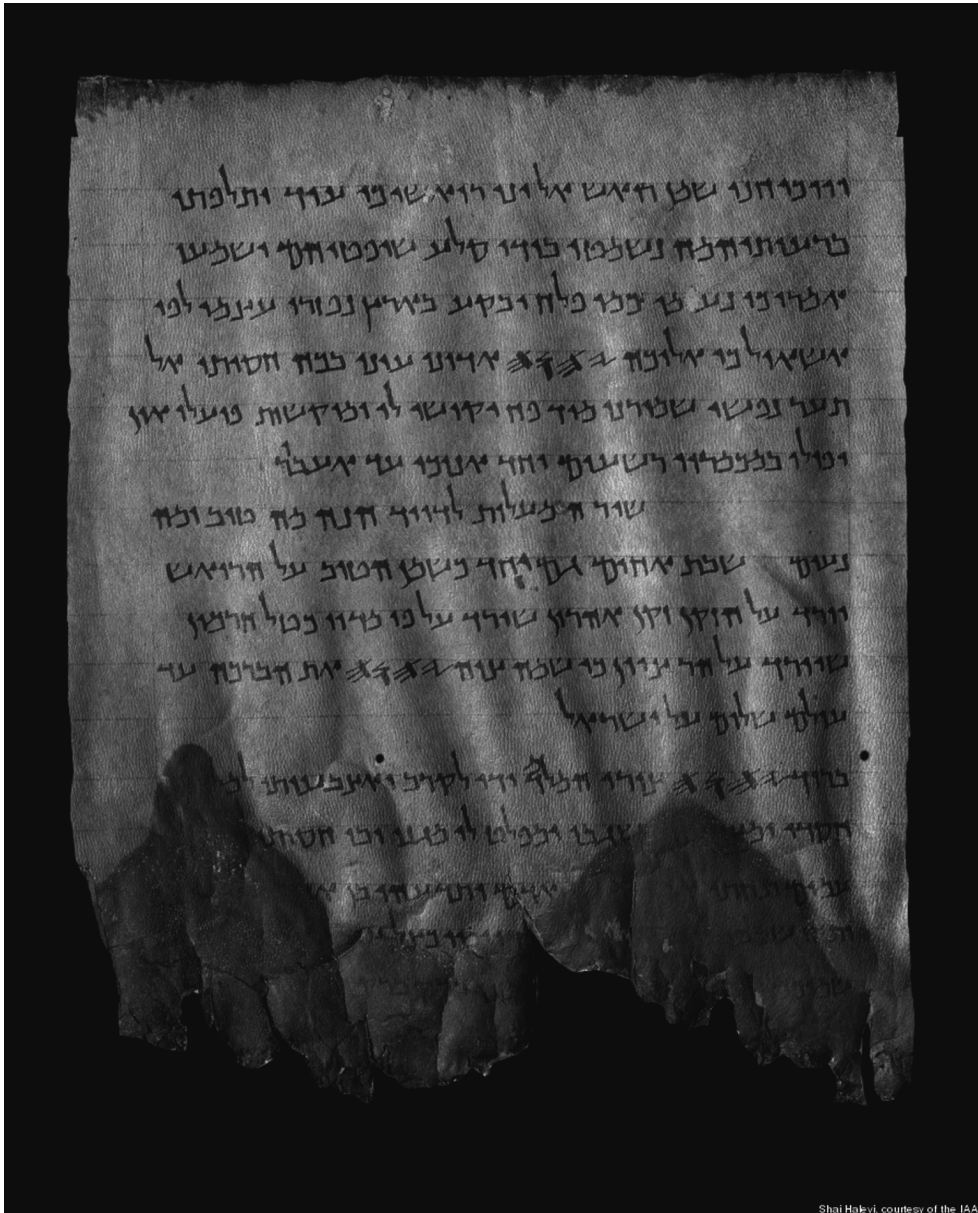 ויוכיחני שמן רואש אל יני רואשי כי עוד ותפלתי
ברעותיהמה נשמטו בידי סלע שופטיהם וישמעו
אמרי כי נעמו כמו פלח ובקע בארץ נפזרו עצמי לפי
שאול כי אליכה 𐤉𐤄𐤅𐤄 אדוני עיני בכה חסיתי אל
תער נפשי שמורני מיד פח יקושו לי ומוקשות פועלי און
יפולו במכמריו רשעים יחד אנוכי עד אעבר
שיר המעלות לדויד הנה מה טוב ומה
נעים שבת אחים גם יחד כשמן הטוב על הרואש
יורד על הזקן זקן אהרון שירד על פי מדיו כטל חרמון
שיורד על הר ציון כי שמה צוה 𐤉𐤄𐤅𐤄 את הברכה עד
עולם שלום על ישראל
ברוך 𐤉𐤄𐤅𐤄 צורי המלמד ידי לקרב ואצבעותי
חסדי משגבי ומפלט לי מגני ובו חסיתי
עמים תחתי ותדעהו בן
Shai Halevi, courtesy of the IAA